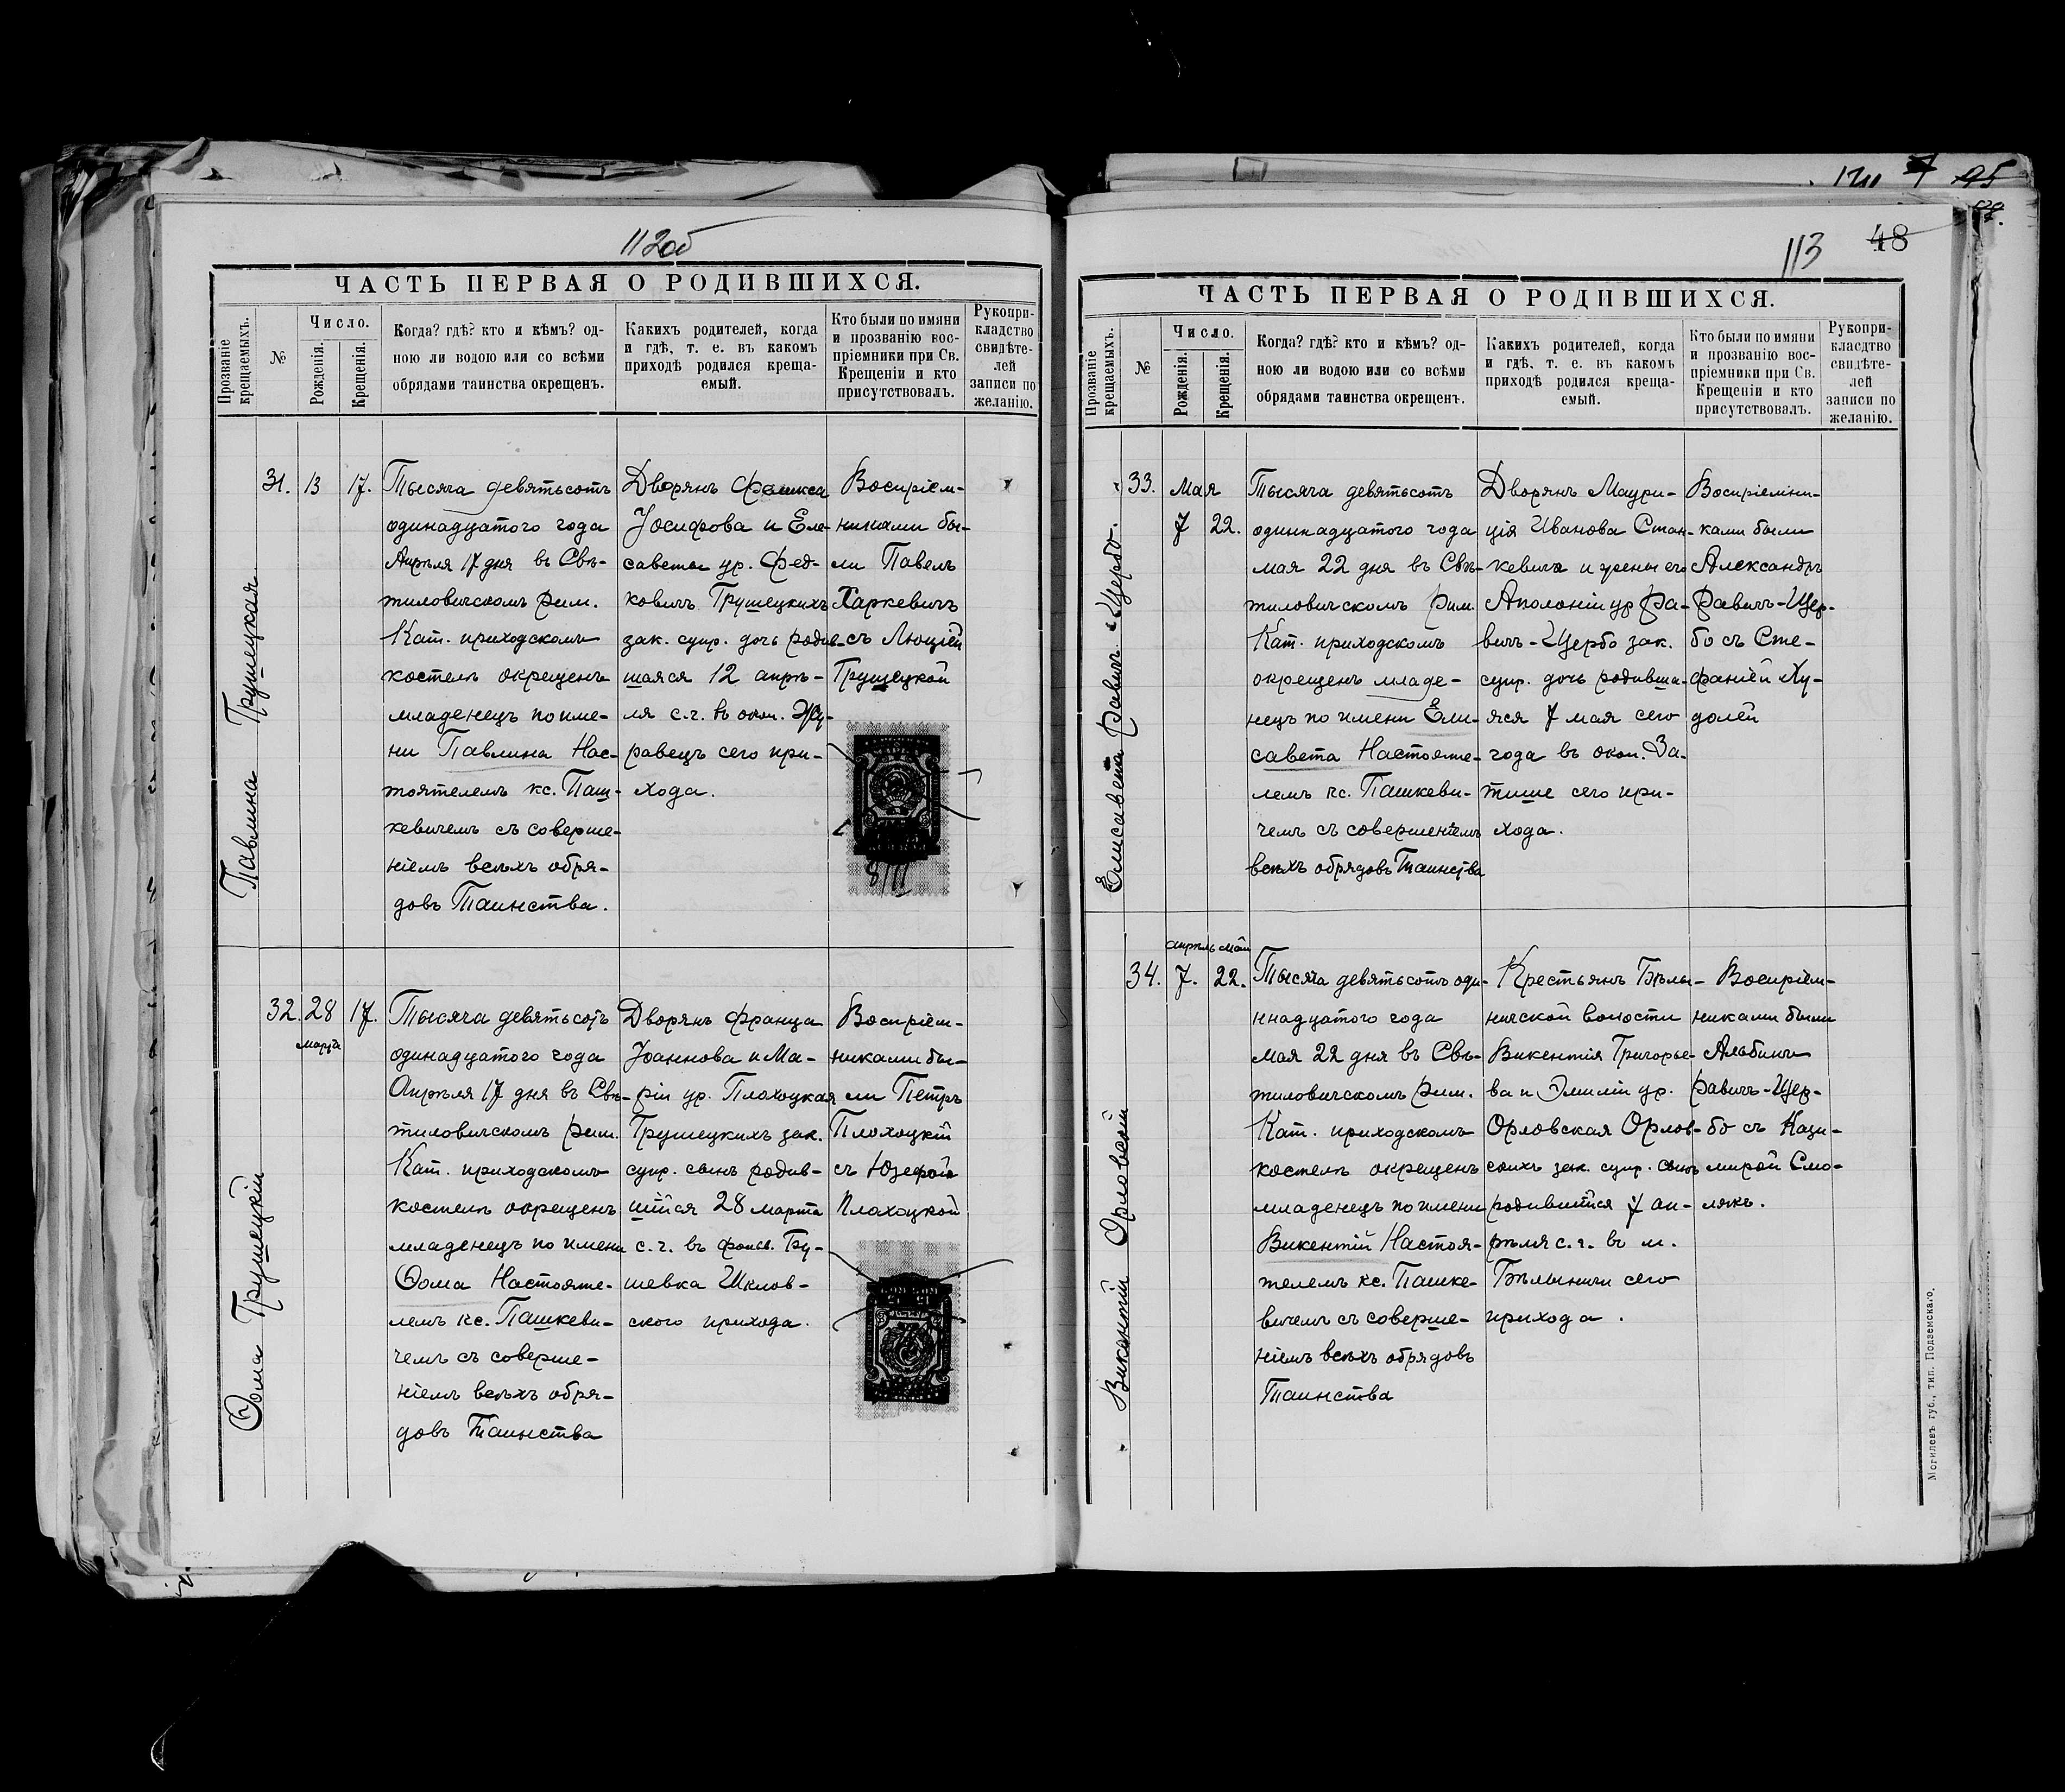 112об
ЧАСТЬ ПЕРВАЯ О РОДИВШИХСЯ.
Прозваніе крещаемыхъ.
№
Число.
Рожденія.
Крещенія.
Когда? гдѣ? кто и кѣмъ? од-
ною ли водою или со всѣми
обрядами таинства окрещенъ.
Какихъ родителей, когда
и гдѣ, т. е. въ какомъ
приходѣ родился креща-
емый.
Кто были по имяни
и прозванію вос-
пріемники при Св.
Крещеніи и кто
присутствовалъ.
Рукопри-
кладство
свидѣте-
лей
записи по
желанію.
Павлина Грушецкая
31. 13 17.
Тысяча девятьсотъ
одинадцатого года
Апрѣля 17 дня въ Свѣ-
тиловичскомъ Рим.
Кат. приходскомъ
костелѣ окрещенъ
младенецъ по име-
ни Павлина Нас-
тоятелемъ кс. Паш-
кевичемъ съ соверше-
ніемъ всѣхъ обря-
довъ Таинства.
Дворянъ Феликса
Іосифова и Ели-
саветы ур. Фед-
ковичъ Грушецкихъ
зак. супр. дочь родив-
шаяся 12 апрѣ-
ля с.г. въ окол. Жу-
равецъ сего при-
хода.
Воспріем-
никами бы-
ли Павелъ
Харкевичъ
съ Люціей
Грушецкой
8/III
Ѳома Грушецкій
32. 28 17.
марта
Тысяча девятьсотъ
одинадцатого года
Апрѣля 17 дня въ Свѣ-
тиловичскомъ Рим.
Кат. приходскомъ
костелѣ окрещенъ
младенецъ по имени
Ѳома Настояте-
лемъ кс. Пашкеви-
чемъ съ соверше-
ніемъ всѣхъ обря-
довъ Таинства
Дворянъ Франца
Іоаннова и Ма-
ріи ур. Плохоцкая
Грушецкихъ зак.
супр. сынъ родив-
шійся 28 марта
с.г. въ фольв. Гру-
шевка Шклов-
ского прихода.
Воспріем-
никами бы-
ли Петръ
Плохоцкій
съ Юзефой
Плохоцкой
113
48
ЧАСТЬ ПЕРВАЯ О РОДИВШИХСЯ.
Прозваніе крещаемыхъ.
№
Число.
Рожденія.
Крещенія.
Когда? гдѣ? кто и кѣмъ? од-
ною ли водою или со всѣми
обрядами таинства окрещенъ.
Какихъ родителей, когда
и гдѣ, т. е. въ какомъ
приходѣ родился креща-
емый.
Кто были по имяни
и прозванію вос-
пріемники при Св.
Крещеніи и кто
присутствовалъ.
Рукопри-
кладство
свидѣте-
лей
записи по
желанію.
Елисавета Равичъ-Щербо.
33. Мая
7 22.
Тысяча девятьсотъ
одиннадцатого года
мая 22 дня въ Свѣ-
тиловичскомъ Рим.
Кат. приходскомъ
окрещенъ младе-
нецъ по имени Ели-
савета Настояте-
лемъ кс. Пашкеви-
чемъ съ совершеніемъ
всѣхъ обрядовъ Таинства
Дворянъ Маури-
ція Иванова Стан-
кевича и жены его
Аполоніи ур Ра-
вичъ-Щербо зак.
супр. дочь родивша-
яся 7 мая сего
года въ окол. За-
тише сего при-
хода.
Воспріемни-
ками были
Александръ
Равичъ-Щер-
бо съ Сте-
фаніей Ху-
долей
Викентій Орловскій
34.
апрѣль май
7. 22.
Тысяча девятьсотъ оди-
ннадцатого года
мая 22 дня въ Свѣ-
тиловичскомъ Рим.
Кат. приходскомъ
костелѣ окрещенъ
младенецъ по имени
Викентій Настоя-
телемъ кс. Пашке-
вичемъ съ соверше-
ніемъ всѣхъ обрядовъ
Таинства
Крестьянъ Бѣлы-
ничской волости
Викентія Григорье-
ва и Эмиліи ур.
Орловская Орлов-
скихъ зак. супр. сынъ
родившійся 7 ап-
рѣля с.г. въ м.
Бѣлыничи сего
прихода.
Воспріем-
никами были
Альбинъ
Равичъ-Щер-
бо съ Кази-
мирой Смо-
лякъ.
Могилевъ губ., тип. Подземскаго.